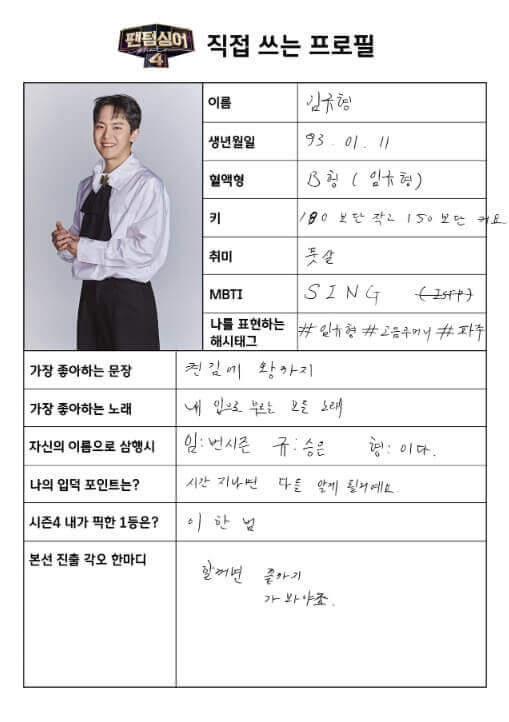 팬텀싱어
4
직접 쓰는 프로필
이름 임규형
생년월일 93. 01. 11
혈액형 B형 ( 임규형)
키 180 보단 작고 150 보단 커요
취미 풋살
MBTI SING (ISFP)
나를 표현하는
해시태그 #임규형 #고음주머니 #파주
가장 좋아하는 문장 천길에 왕까지
가장 좋아하는 노래 내 입으로 부르는 모든 노래
자신의 이름으로 삼행시 임:번시즌 규:승은 형:이다.
나의 입덕 포인트는? 시간 지나면 다들 알게 될거예요.
시즌4 내가 픽한 1등은? 이한범
본선 진출 각오 한마디 할꺼면 끝까지
가 봐야죠.